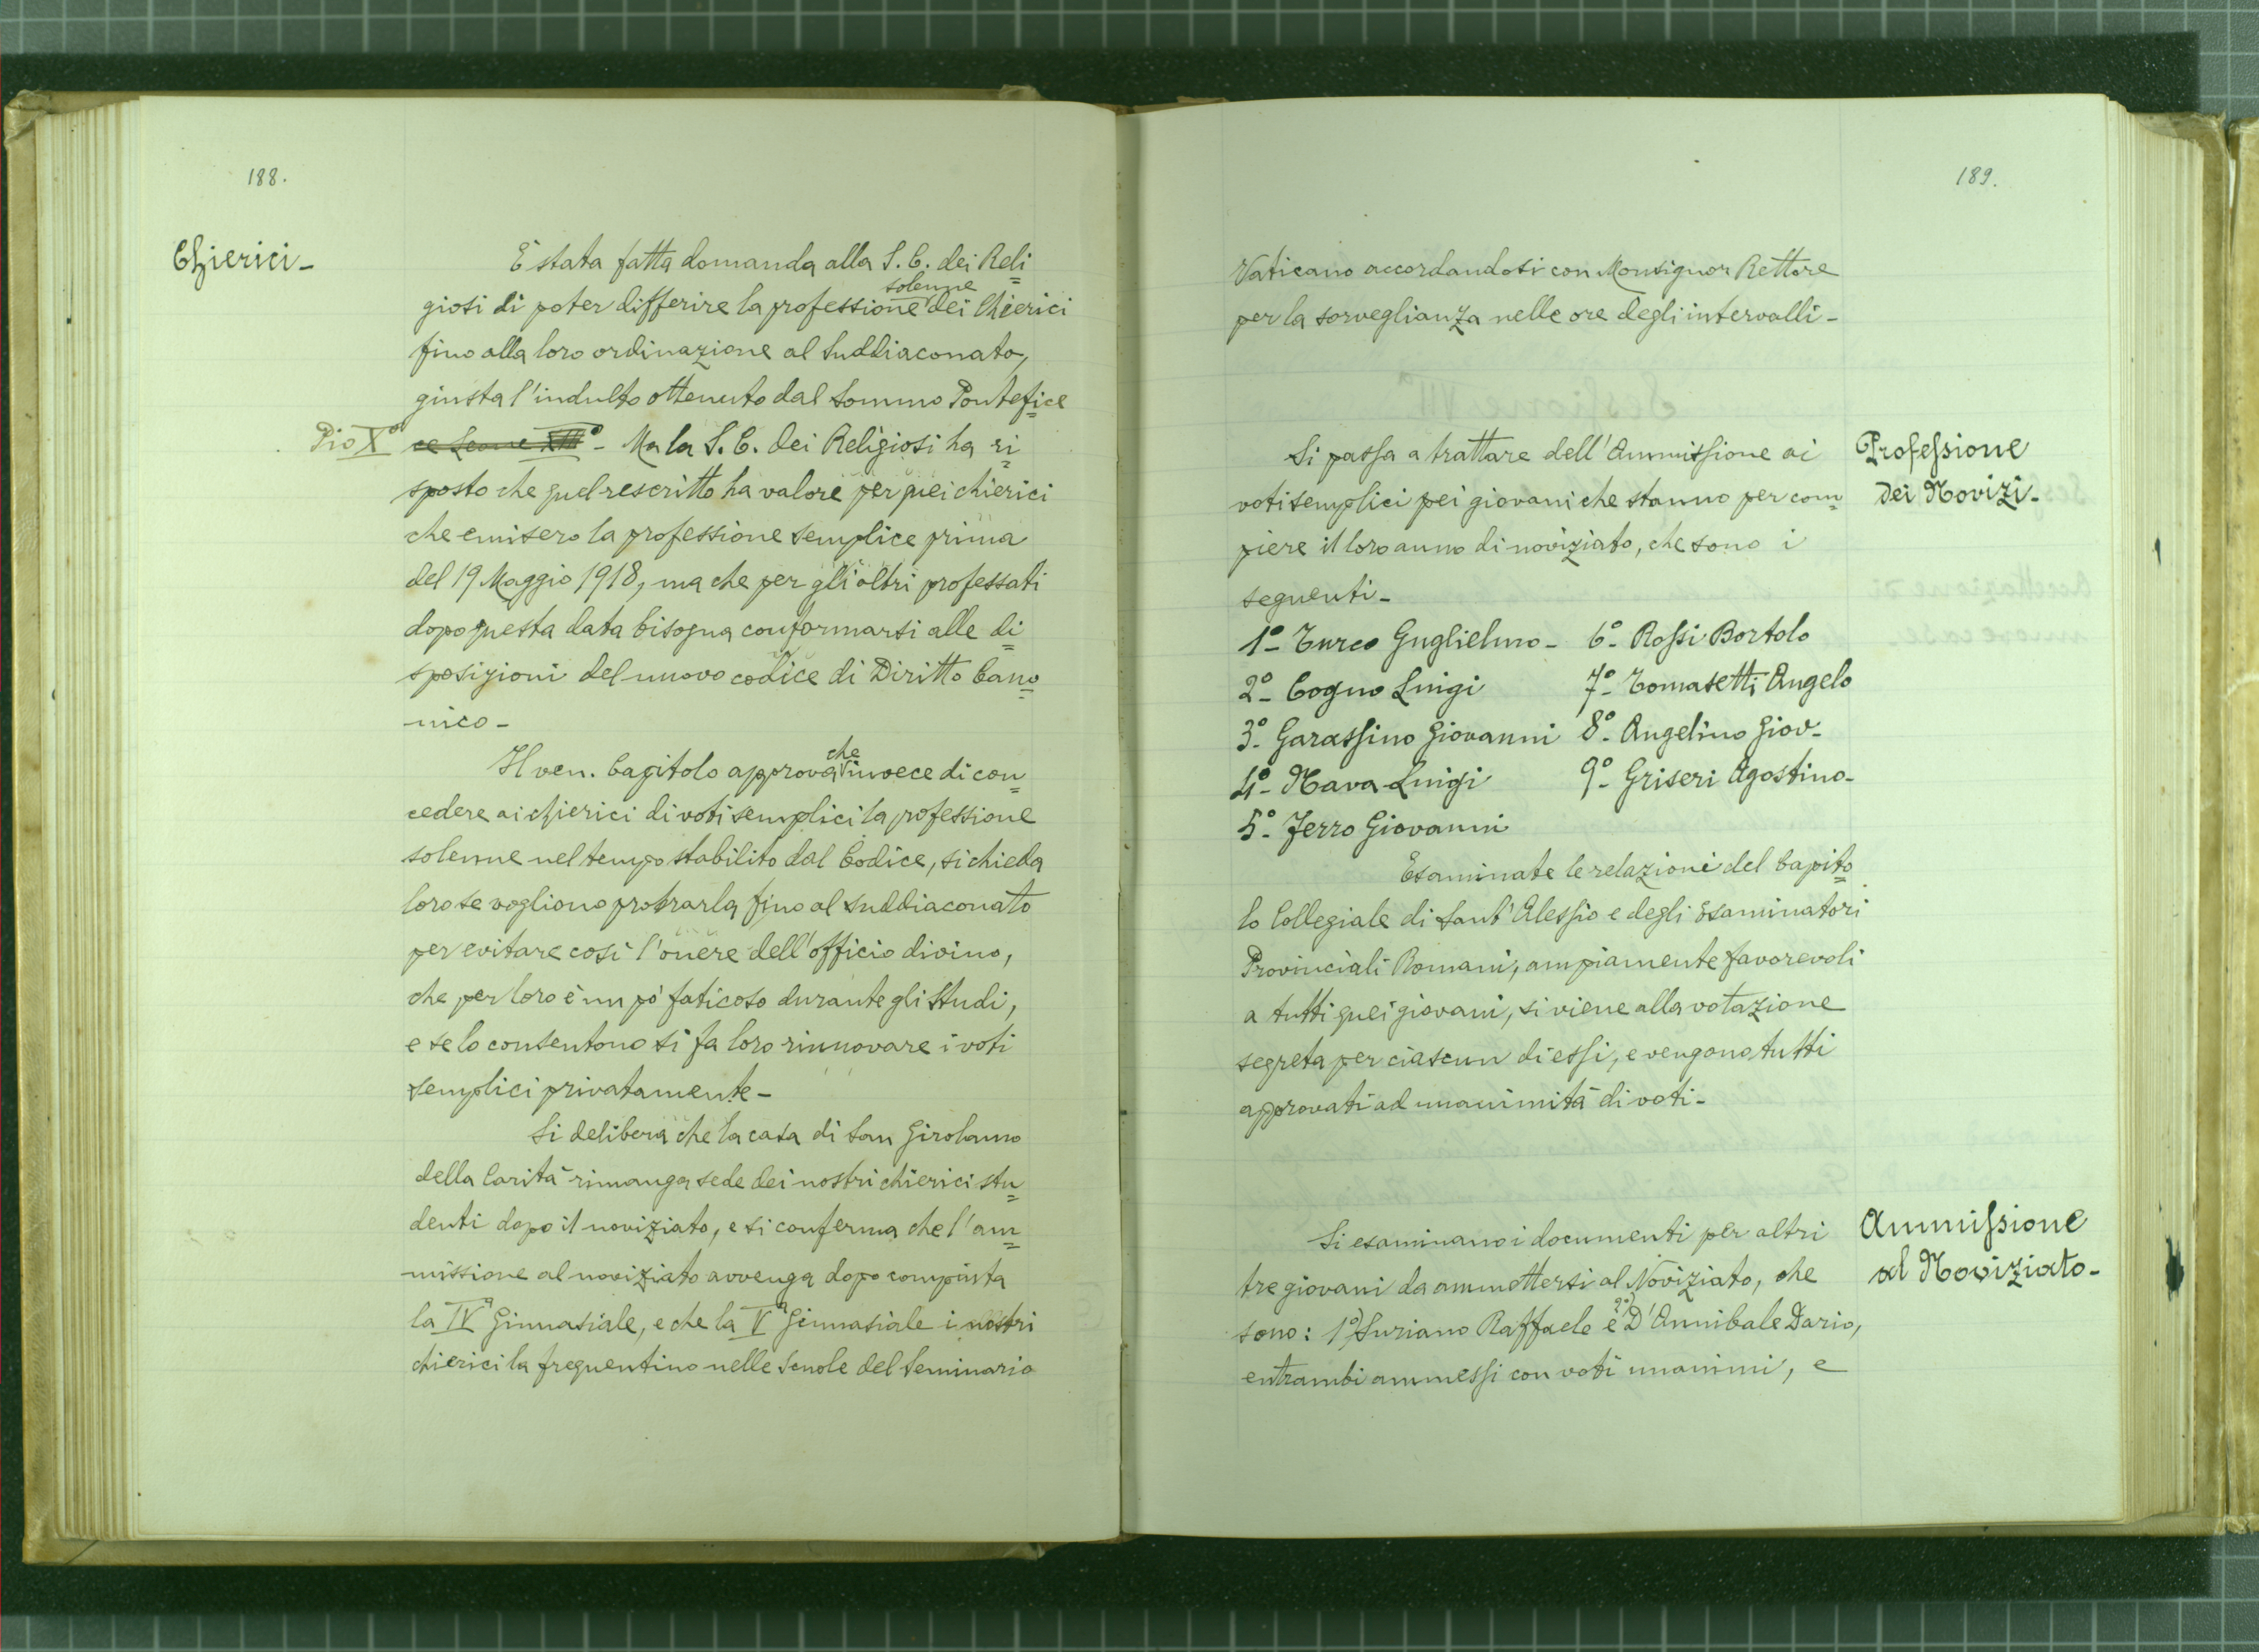 188.
Chierici-
È stata fatta domanda alla S. C. dei Reli=
solenne
giosi di poter differire la professione dei Chierici
fino alla loro ordinazione al Suddiaconato,
giusta l'indulto ottenuto dal Sommo Pontefice
Pio Xº ce Leone XIIIº - Ma la S. C. dei Religiosi ha ri=
sposto che quel rescritto ha valore per quei chierici
che emisero la professione semplice prima
del 19 Maggio 1918, ma che per gli altri professati
dopo questa data bisogna conformarsi alle di=
sposizioni del nuovo codice di Diritto Cano=
nico-
che
Il ven. Capitolo approva invece di con=
cedere ai chierici di voti semplici la professione
solenne nel tempo stabilito dal Codice, si chieda
loro se vogliono protrarla fino al suddiaconato
per evitare così l'onere dell'officio divino,
che per loro è un pò faticoso durante gli studi,
e se lo consentono si fa loro rinnovare i voti
semplici privatamente-
Si delibera che la casa di San Girolamo
della Carità rimanga sede dei nostri chierici stu=
denti dopo il noviziato, e si conferma che l'am=
missione al noviziato avvenga dopo compiuta
la IVª Ginnasiale, e che la Vª Ginnasiale i nostri
chierici la frequentino nelle Scuole del Seminario
189.
Vaticano accordandosi con Monsignor Rettore
per la sorveglianza nelle ore degli intervalli-
Professione
dei Novizi-
Si passa a trattare dell'Ammissione ai
voti semplici pei giovani che stanno per com=
piere il loro anno di noviziato, che sono i
seguenti-
1º- Turco Guglielmo- 6º- Rossi Bortolo
2º- Cogno Luigi 7º- Tomasetti Angelo
3º- Garassino Giovanni 8º- Angelino Giov-
4º- Nava Luigi 9º- Griseri Agostino-
5º- Ferro Giovanni
Esaminate le relazioni del Capito=
lo Collegiale di Sant'Alessio e degli Esaminatori
Provinciali Romani, ampiamente favorevoli
a tutti quei giovani, si viene alla votazione
segreta per ciascun di essi, e vengono tutti
approvati ad unanimità di voti-
Ammissione
al Noviziato-
Si esaminano i documenti per altri
tre giovani da ammettersi al Noviziato, che
sono: 1º) Suriano Raffaele e 2º) D'Annibale Dario,
entrambi ammessi con voti unanimi, e